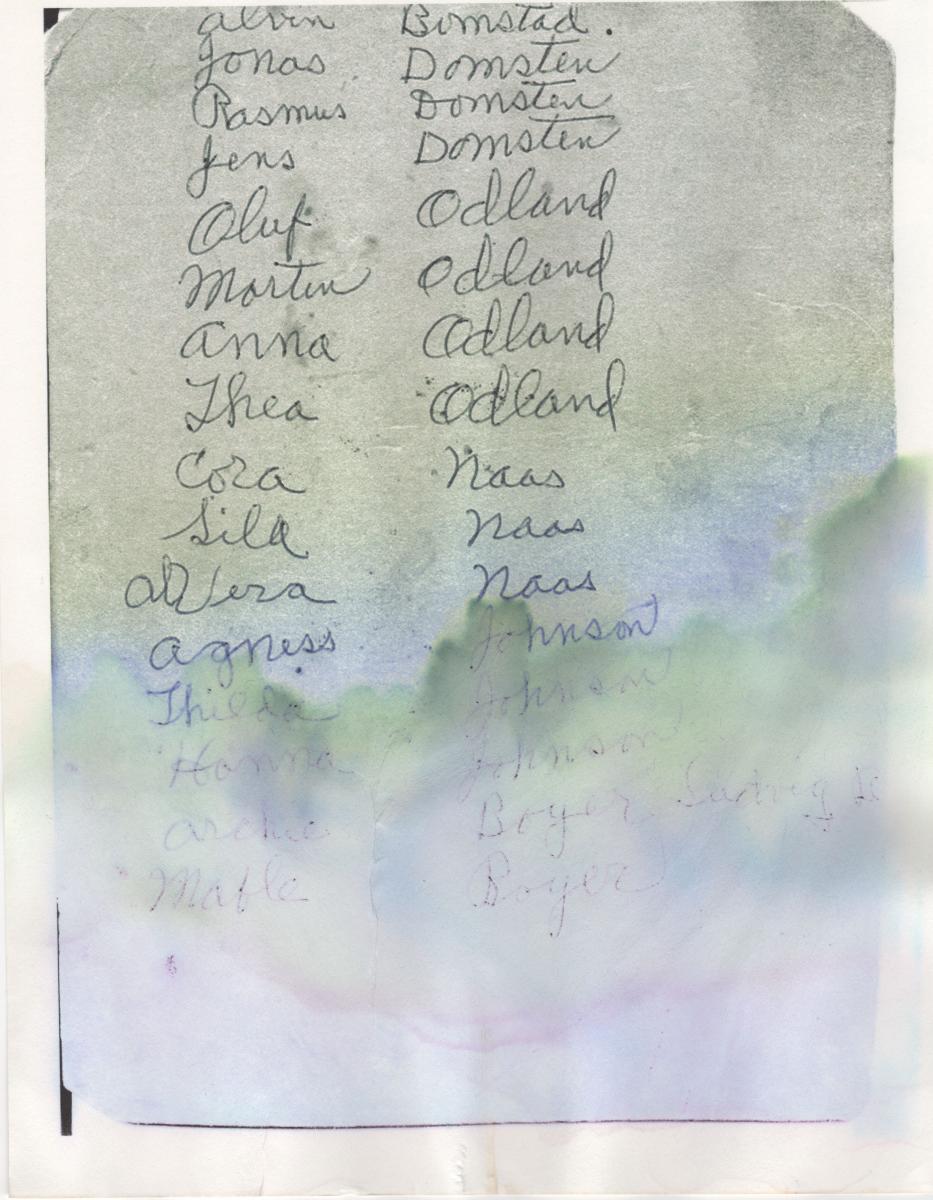 Alvin Bomstad.
Jonas Domsten
Rasmus Domsten
Jens Domsten
Oluf Odland
Martin Odland
Anna Odland
Thea Odland
Cora Naas
Sila Naas
Alvera Naas
Agness Johnson
Thilda Johnson
Hanna Johnson
Archie Boyer Ludvig
Mable Boyer